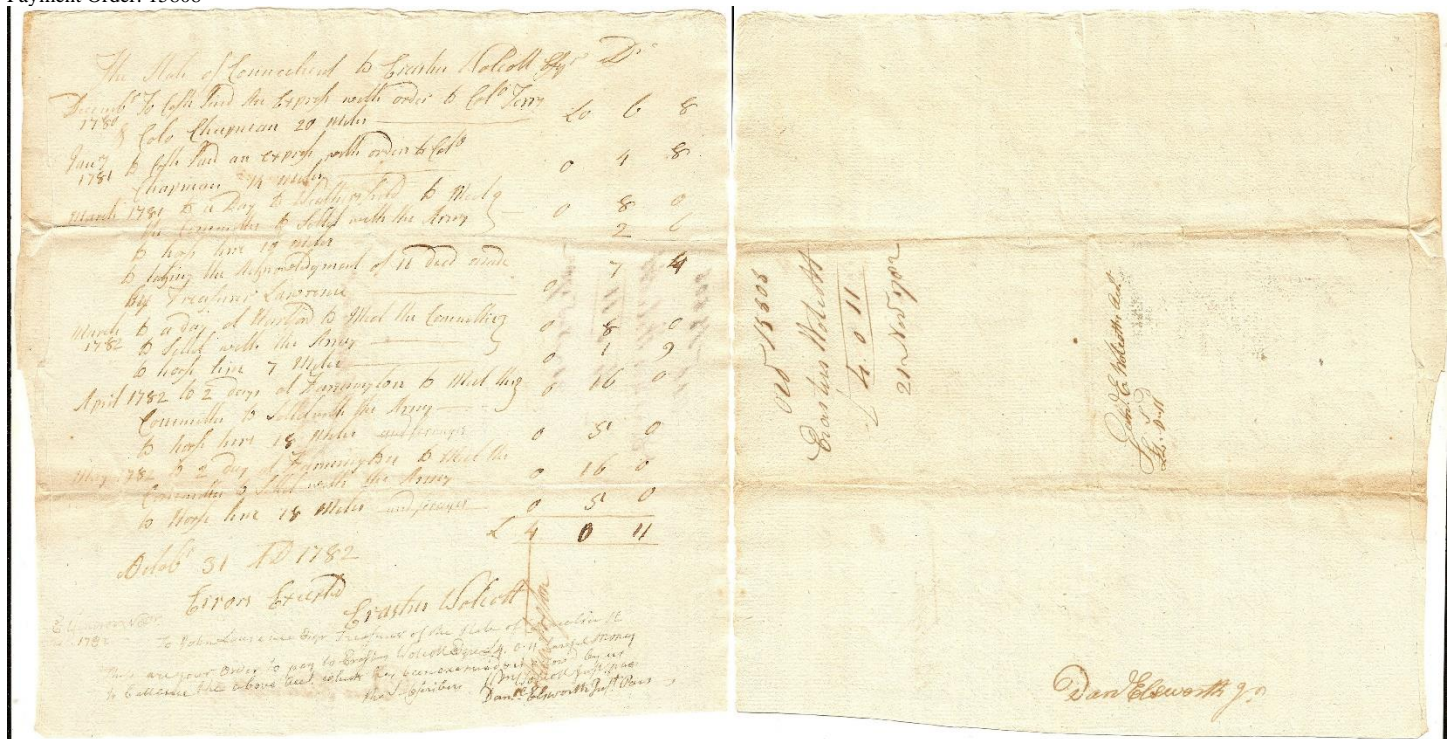 Payment Order: 15808
The State of Connecticut to Erastus Wolcott Esqr Dr
Decembr To Cash Paid An Express with order to Colo Terry
1780 & Colo Chapman 20 Miles £0 6 8
Jany to Cash Paid an express with order to Colo
1781 Chapman 14 Miles 0 4 8
March 1781 to a Day to Weathersfield to Meet
the Committee to Settel with the Army 0 8 0
to hors hire 10 miles 2 6
to taking the Acknowledgment of 11 deed made
By Treasurer Lawrence 0 7 4
March to a day at Hartford to Meet the Committee
1782 to Settel with the Army 0 8 0
to hors hire 7 Miles 0 1 9
April 1782 to 2 days at Farmington to Meet the
Committee to Settel with the Army 0 16 0
to hors hire 18 Miles 0 5 0
May 1782 to 2 day at Farmington to Meet the
Committee to Settel with the Army 0 16 0
to Hors hire 18 Miles 0 5 0
£ 4 0 11
Octobr 31 AD 1782
Errors Excepted
Erastus Wolcott
1782 To John Lawrence Esqr Treasurer of the State of Connecticut
your Order to pay to Erastus Wolcott Esqr £4. 0. 11 Lawful Money
to ballance the above acct which has been examined by us
the Subscribers
Danll Elsworth Just Pace
Old 15808
Erastus Wolcott
£4. 0 11
21 Novr 1782
Genl E. Wolcotts Act.
Dan Elsworth Jr